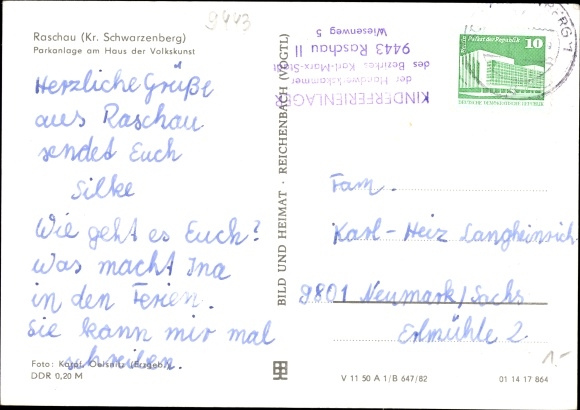 Raschau (Kr. Schwarzenberg)
Parkanlage am Haus der Volkskunst
9443
Herzliche Grüße
aus Raschau
sendet Euch
Silke
Wie geht es Euch?
Was macht Ina
in den Ferien.
Sie kann mir mal
schreiben.
Foto: Oelsnitz (Erzgeb.)
DDR 0,20 M
BILD UND HEIMAT · REICHENBACH (VOGTL)
KINDERFERIENLAGER
der Handwerkskammer
des Bezirkes Karl-Marx-Stadt
9443 Raschau II
Wiesenweg 5
Berlin Palast der Republik
10
DEUTSCHE DEMOKRATISCHE REPUBLIK
Fam.
Karl-Heiz Langheinrich
9801 Neumark/Sachs
Erlmühle 2
1.-
V 11 50 A 1/B 647/82
01 14 17 864